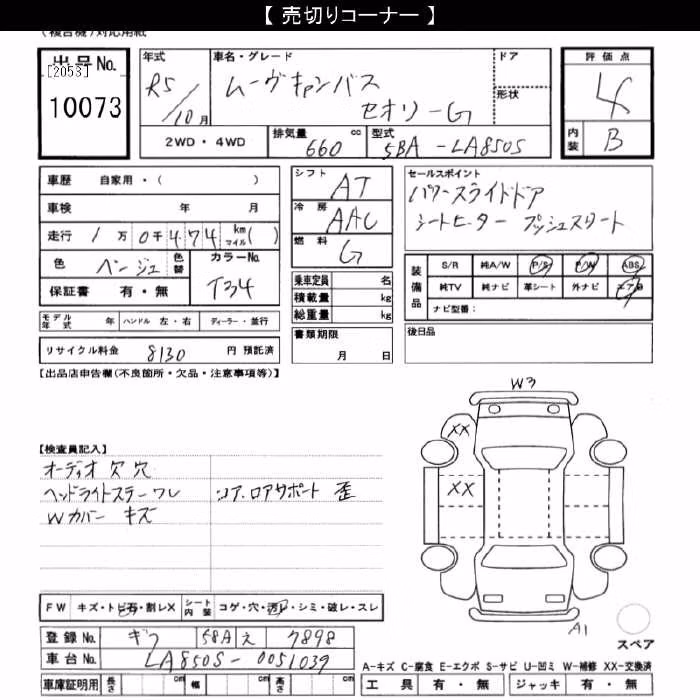 【 売切りコーナー 】
(複合機)対応用紙
出品No.
[2053]
10073
年式
R5/10月
車名・グレード
ムーヴキャンバス
セオリーG
ドア
形状
評価点
4
内装 B
2WD・4WD
排気量 660 cc
型式 5BA-LA850S
車歴 自家用・( )
車検 年 月
走行 1万0千474 km マイル( )
色 ベージュ 色替
カラーNo. T34
保証書 有・無
シフト AT
冷房 AAC
燃料 G
乗車定員 名
積載量 kg
総重量 kg
セールスポイント
パワースライドドア
シートヒーター プッシュスタート
装備品
S/R 純A/W P/S P/W ABS
純TV 純ナビ 革シート 外ナビ エアB
ナビ型番:
モデル年式 年 ハンドル 左・右 ディーラー・並行
リサイクル料金 8130 円 預託済
書類期限
月 日
後日品
【出品店申告欄(不良箇所・欠品・注意事項等)】
W3
XX
XX
A1
スペア
【検査員記入】
オーディオ欠 穴
ヘッドライトステーワレ リア.ロアサポート 歪
Wカバー キズ
FW キズ・トビ石・割レX
シート内装 コゲ・穴・汚レ・シミ・破レ・スレ
登録No. ギフ 58A え 7898
車台No. LA850S-0051039
車庫証明用 長さ cm 幅 cm 高さ cm
A-キズ C-腐食 E-エクボ S-サビ U-凹ミ W-補修 XX-交換済
工具 有・無 ジャッキ 有・無